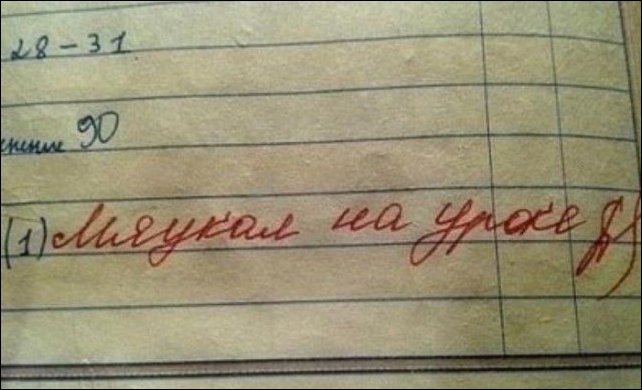 28-31
нение 90
(1) Мяукал на уроке